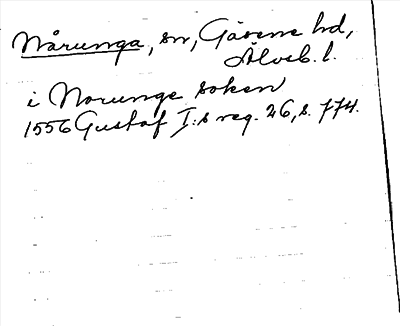 Nårunga, sn, Gäsene hd,
Älvsb. l.
i Norunge soken
1556 Gustaf I:s reg. 26, s. 774.